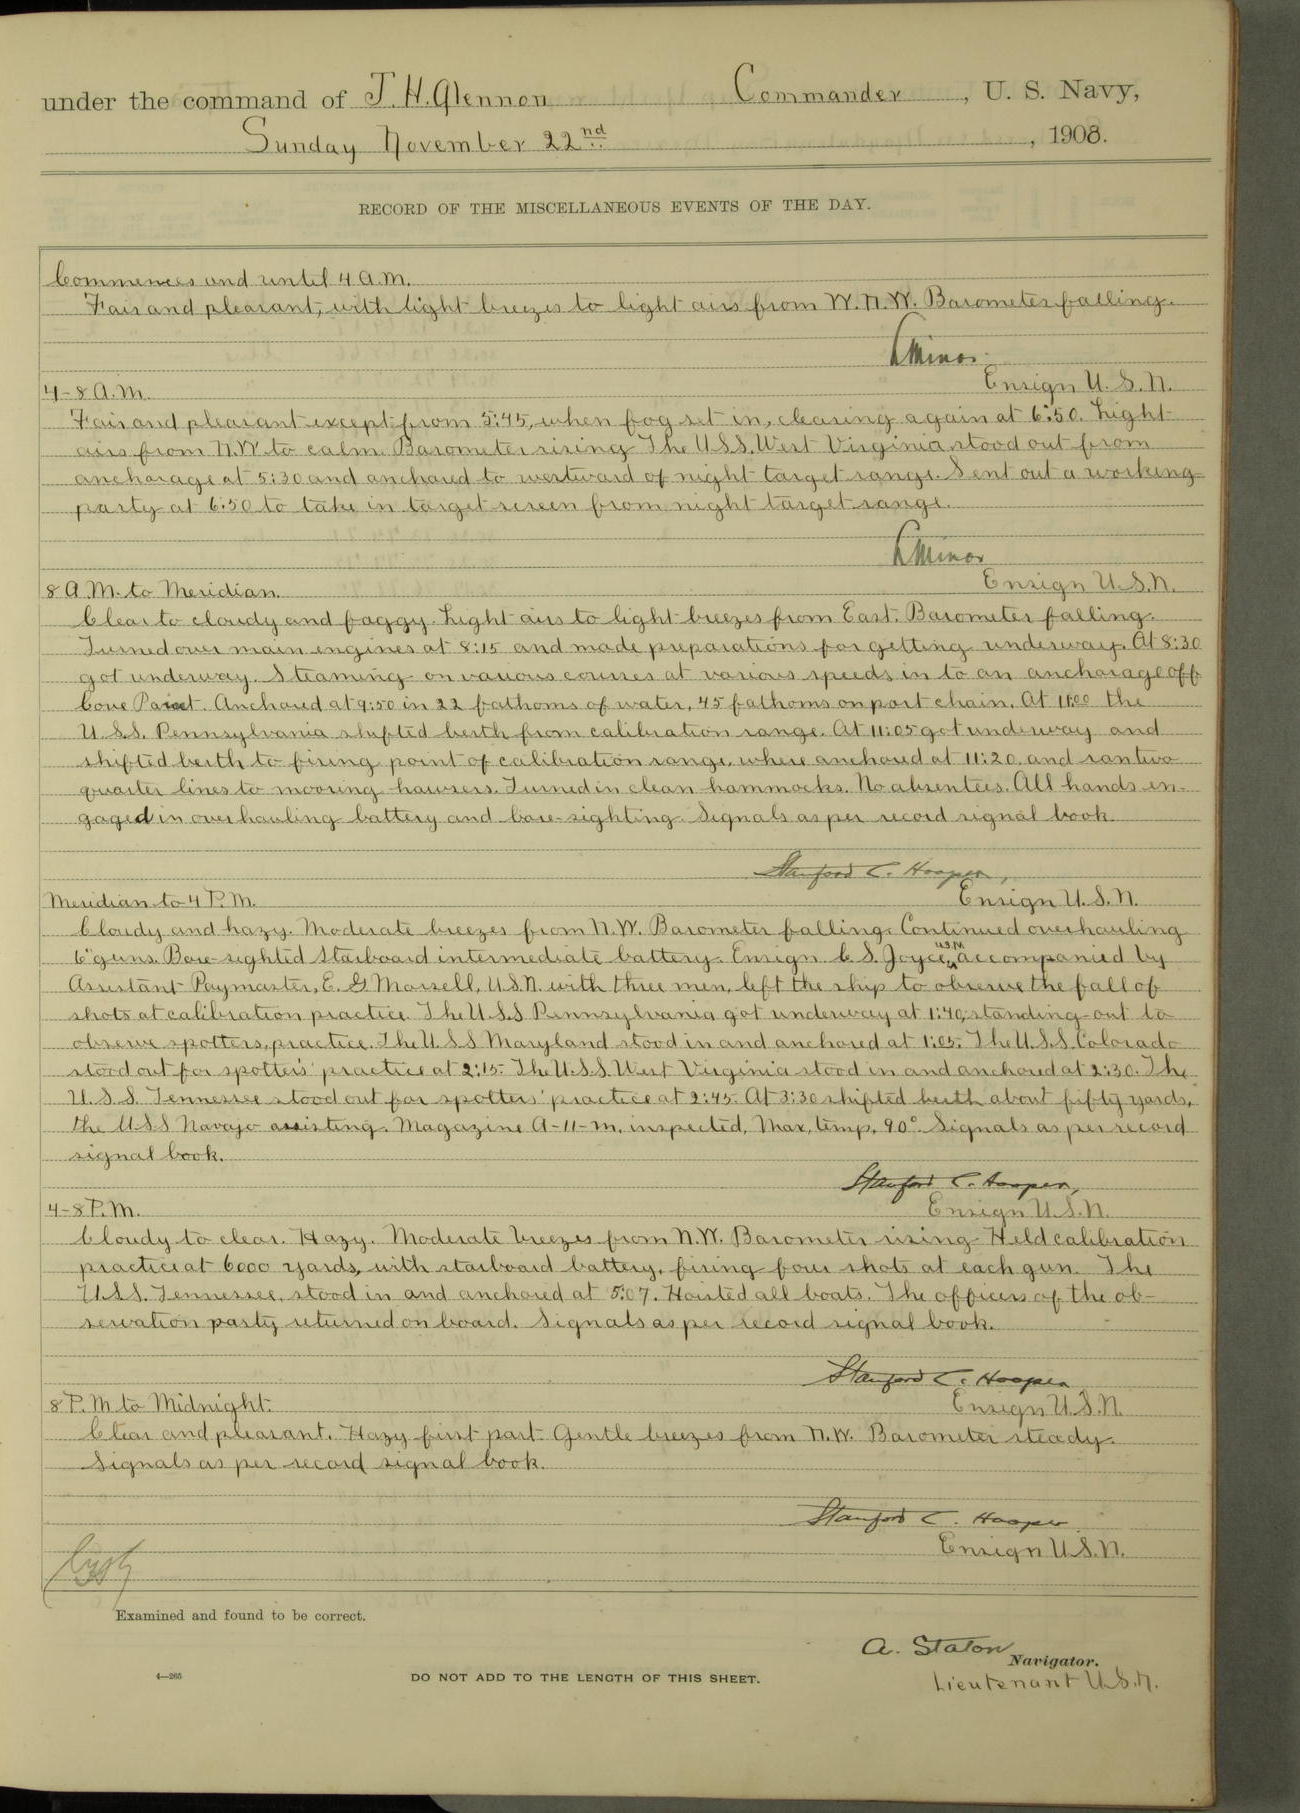 under the command of J. H. Glennon Commander, U. S. Navy,
Sunday November 22nd, 1908.
RECORD OF THE MISCELLANEOUS EVENTS OF THE DAY.
Commences and until 4 A.M.
Fair and pleasant, with light breezes to light airs from W.N.W. Barometer falling.
L Minor
Ensign U.S.N.
4-8 A.M.
Fair and pleasant except from 5:45, when fog set in, clearing again at 6:50. Light
airs from N.W to calm. Barometer rising The U.S.S. West Virginia stood out from
anchorage at 5:30 and anchored to westward of night target range. Sent out a working
party at 6:50 to take in target screen from night target range.
L Minor
Ensign U.S.N.
8 A.M. to Meridian.
Clear to cloudy and foggy. Light airs to light breezes from East. Barometer falling.
Turned over main engines at 8:15 and made preparations for getting underway. At 8:30
got underway. Steaming on various courses at various speeds in to an anchorage off
Cove Point. Anchored at 9:50 in 22 fathoms of water, 45 fathoms on port chain. At 11:00 the
U.S.S. Pennsylvania shifted berth from calibration range. At 11:05 got underway and
shifted berth to firing point of calibration range, where anchored at 11:20, and ran two
quarter lines to mooring hawsers. Turned in clean hammocks. No absentees. All hands en-
gaged in overhauling battery and bore-sighting. Signals as per record signal book.
Stanford C. Hooper,
Ensign U.S.N.
Meridian to 4 P.M.
Cloudy and hazy. Moderate breezes from N.W. Barometer falling. Continued overhauling
6" guns. Bore-sighted starboard intermediate battery. Ensign C. S. Joyce, U.S.N. accompanied by
Assistant Paymaster, E. G Morsell, U.S.N. with three men, left the ship to observe the fall of
shots at calibration practice. The U.S.S Pennsylvania got underway at 1:40, standing out to
observe spotters, practice. The U.S.S Maryland stood in and anchored at 1:05. The U.S.S. Colorado
stood out for spotters' practice at 2:15. The U.S.S. West Virginia stood in and anchored at 2:30. The
U.S.S. Tennessee stood out for spotters' practice at 2:45. At 3:30 shifted berth about fifty yards,
the U.S.S Navajo assisting. Magazine A-11-M, inspected, Max, temp, 90°. Signals as per record
signal book.
Stanford C. Hooper,
Ensign U.S.N.
4-8 P.M.
Cloudy to clear. Hazy. Moderate breezes from N.W. Barometer rising. Held calibration
practice at 6000 yards, with starboard battery, firing four shots at each gun. The
U.S.S. Tennessee, stood in and anchored at 5:07. Hoisted all boats. The officers of the ob-
servation party returned on board. Signals as per record signal book.
Stanford C. Hooper
Ensign U.S.N.
8 P.M to Midnight.
Clear and pleasant. Hazy first part. Gentle breezes from N.W. Barometer steady.
Signals as per record signal book.
Stanford C. Hooper
Ensign U.S.N.
Examined and found to be correct.
A. Staton
Navigator.
Lieutenant U.S.N.
4—265
DO NOT ADD TO THE LENGTH OF THIS SHEET.